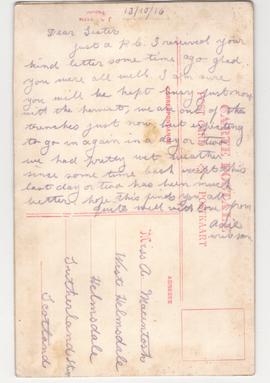 13/10/16
Dear Sister
Just a P.C. I received your
kind letter some time ago glad
you were all well. I am sure
you will be kept busy just now
with the harvest, we are out of the
trenches just now but expecting
to go in again in a day or two
we had pretty wet weather
since some time back except this
last day or two has been much
better. hope this finds you all
quite well with love from
Miss A. Macintosh
West Helmsdale
Helmsdale
Sutherlandshire
Scotland
ADRESSE
POSTKAART